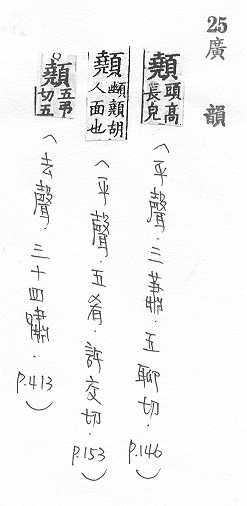 25 廣韻
顤 頭高長皃 (平聲.三蕭.五聊切.P.146)
顤 顤胡人面也 (平聲.五肴.許交切.P.153)
顤 五弔切五 (去聲.三十四嘯.P.413)